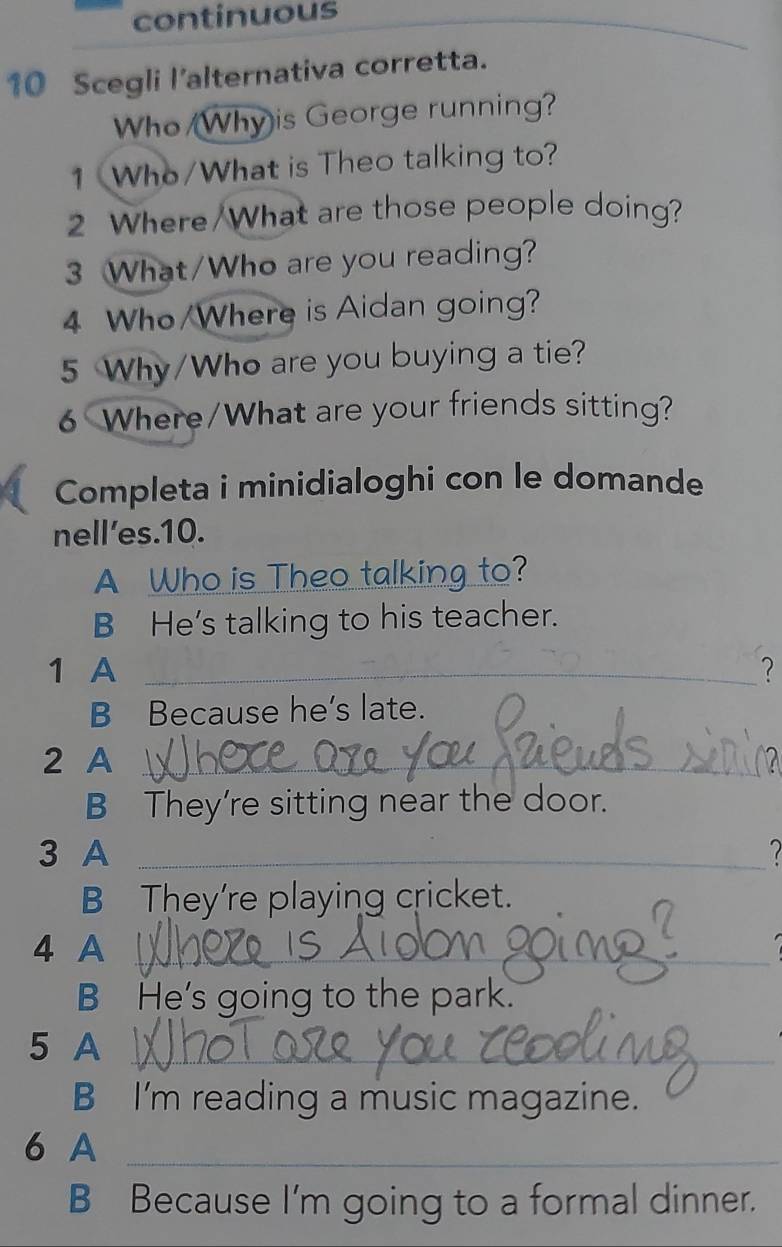 continuous
10 Scegli l'alternativa corretta.
Who/Why is George running?
1 Who/What is Theo talking to?
2 Where/What are those people doing?
3 What/Who are you reading?
4 Who/Where is Aidan going?
5 Why/Who are you buying a tie?
6 Where/What are your friends sitting?
Completa i minidialoghi con le domande
nell'es.10.
A Who is Theo talking to?
B He's talking to his teacher.
1 A ?
B Because he's late.
2 A Where are you friends ?
B They're sitting near the door.
3 A ?
B They're playing cricket.
4 A Where is Aidan going?
B He's going to the park.
5 A What are you reading
B I'm reading a music magazine.
6 A
B Because I'm going to a formal dinner.